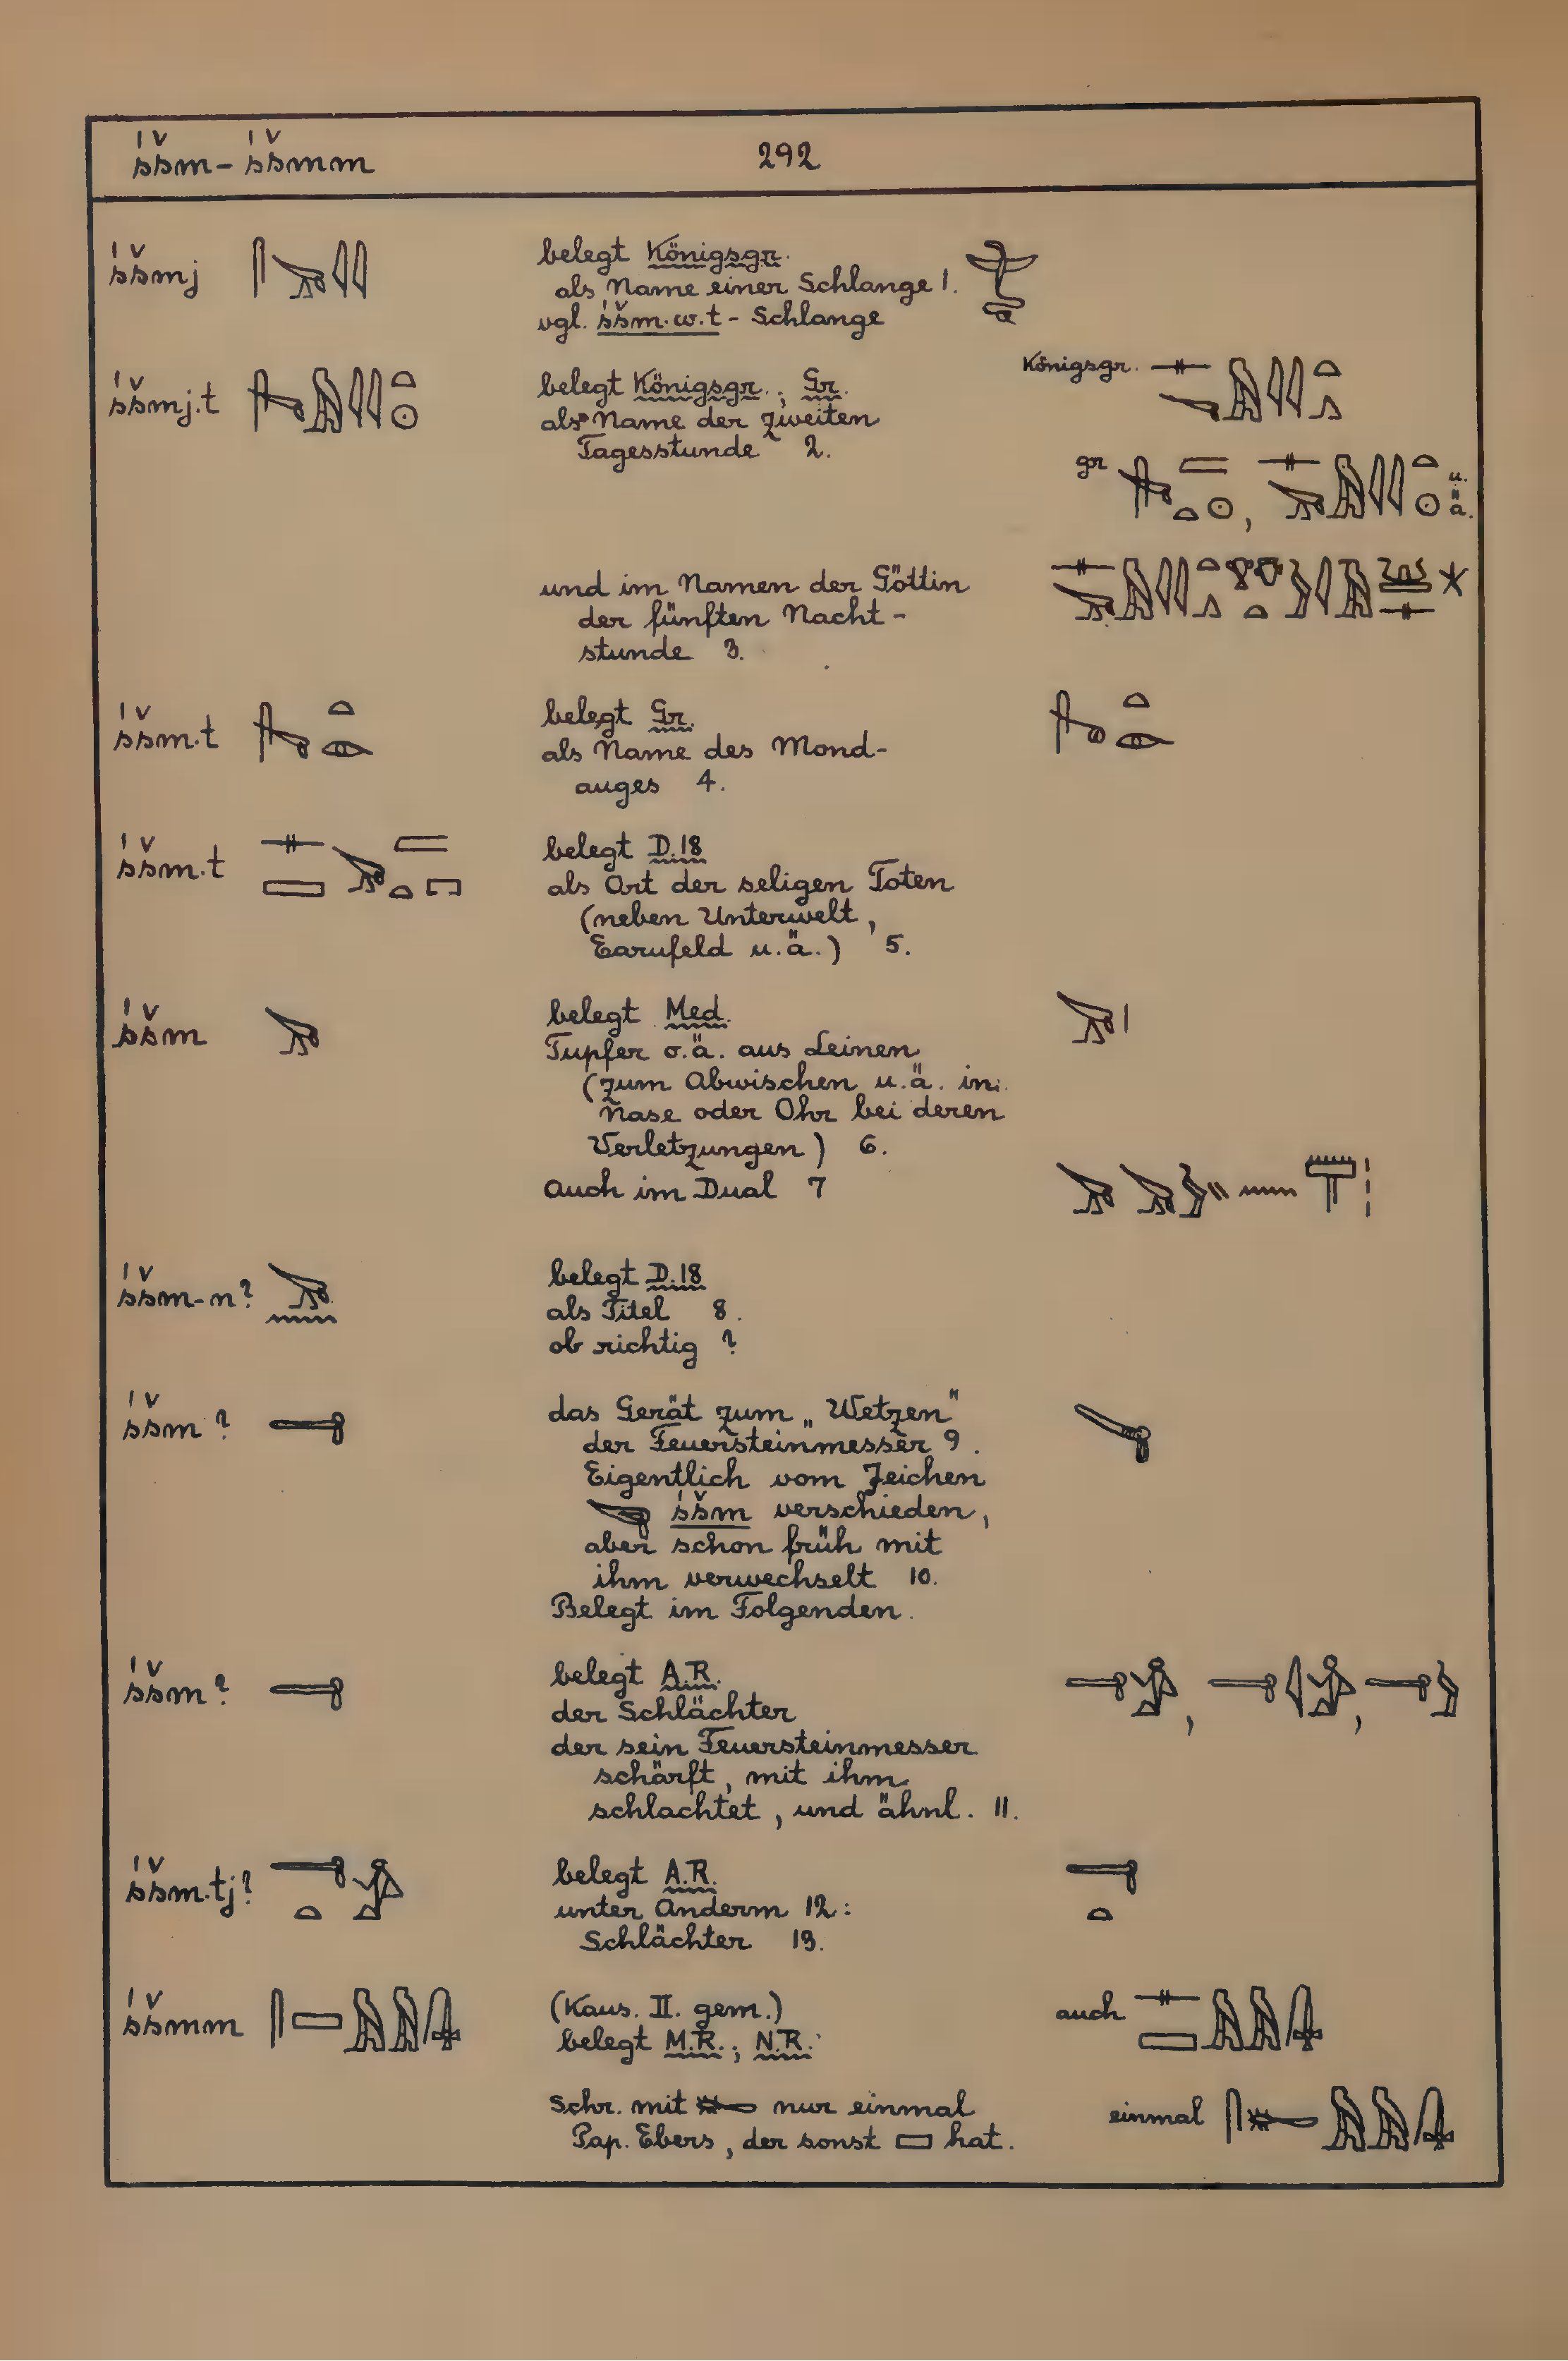 śšm - śšmm 292
śšmj
belegt Königsgr.
als Name einer Schlange 1.
vgl. śšm.w.t - Schlange
śšmj.t
belegt Königsgr.; Gr.
als Name der zweiten
Tagesstunde 2.
Königsgr.
gr
u.
ä.
und im Namen der Göttin
der fünften Nacht-
stunde 3.
śšm.t
belegt Gr.
als Name des Mond-
auges 4.
śšm.t
belegt D.18
als Ort der seligen Toten
(neben Unterwelt,
Earufeld u.ä.) 5.
śšm
belegt Med.
Tupfer o.ä. aus Leinen
(zum Abwischen u.ä. in
Nase oder Ohr bei deren
Verletzungen) 6.
Auch im Dual 7
śšm-n?
belegt D.18
als Titel 8.
ob richtig ?
śšm ?
das Gerät zum „Wetzen"
der Feuersteinmesser 9.
Eigentlich vom Zeichen
śšm verschieden,
aber schon früh mit
ihm verwechselt 10.
Belegt im Folgenden.
śšm ?
belegt A.R.
der Schlächter
der sein Feuersteinmesser
schärft, mit ihm
schlachtet, und ähnl. 11.
śšm.tj?
belegt A.R.
unter Anderm 12:
Schlächter 13.
śšmm
(Kaus. II. gem.)
belegt M.R.; N.R.
auch
Schr. mit nur einmal
Pap. Ebers, der sonst hat.
einmal